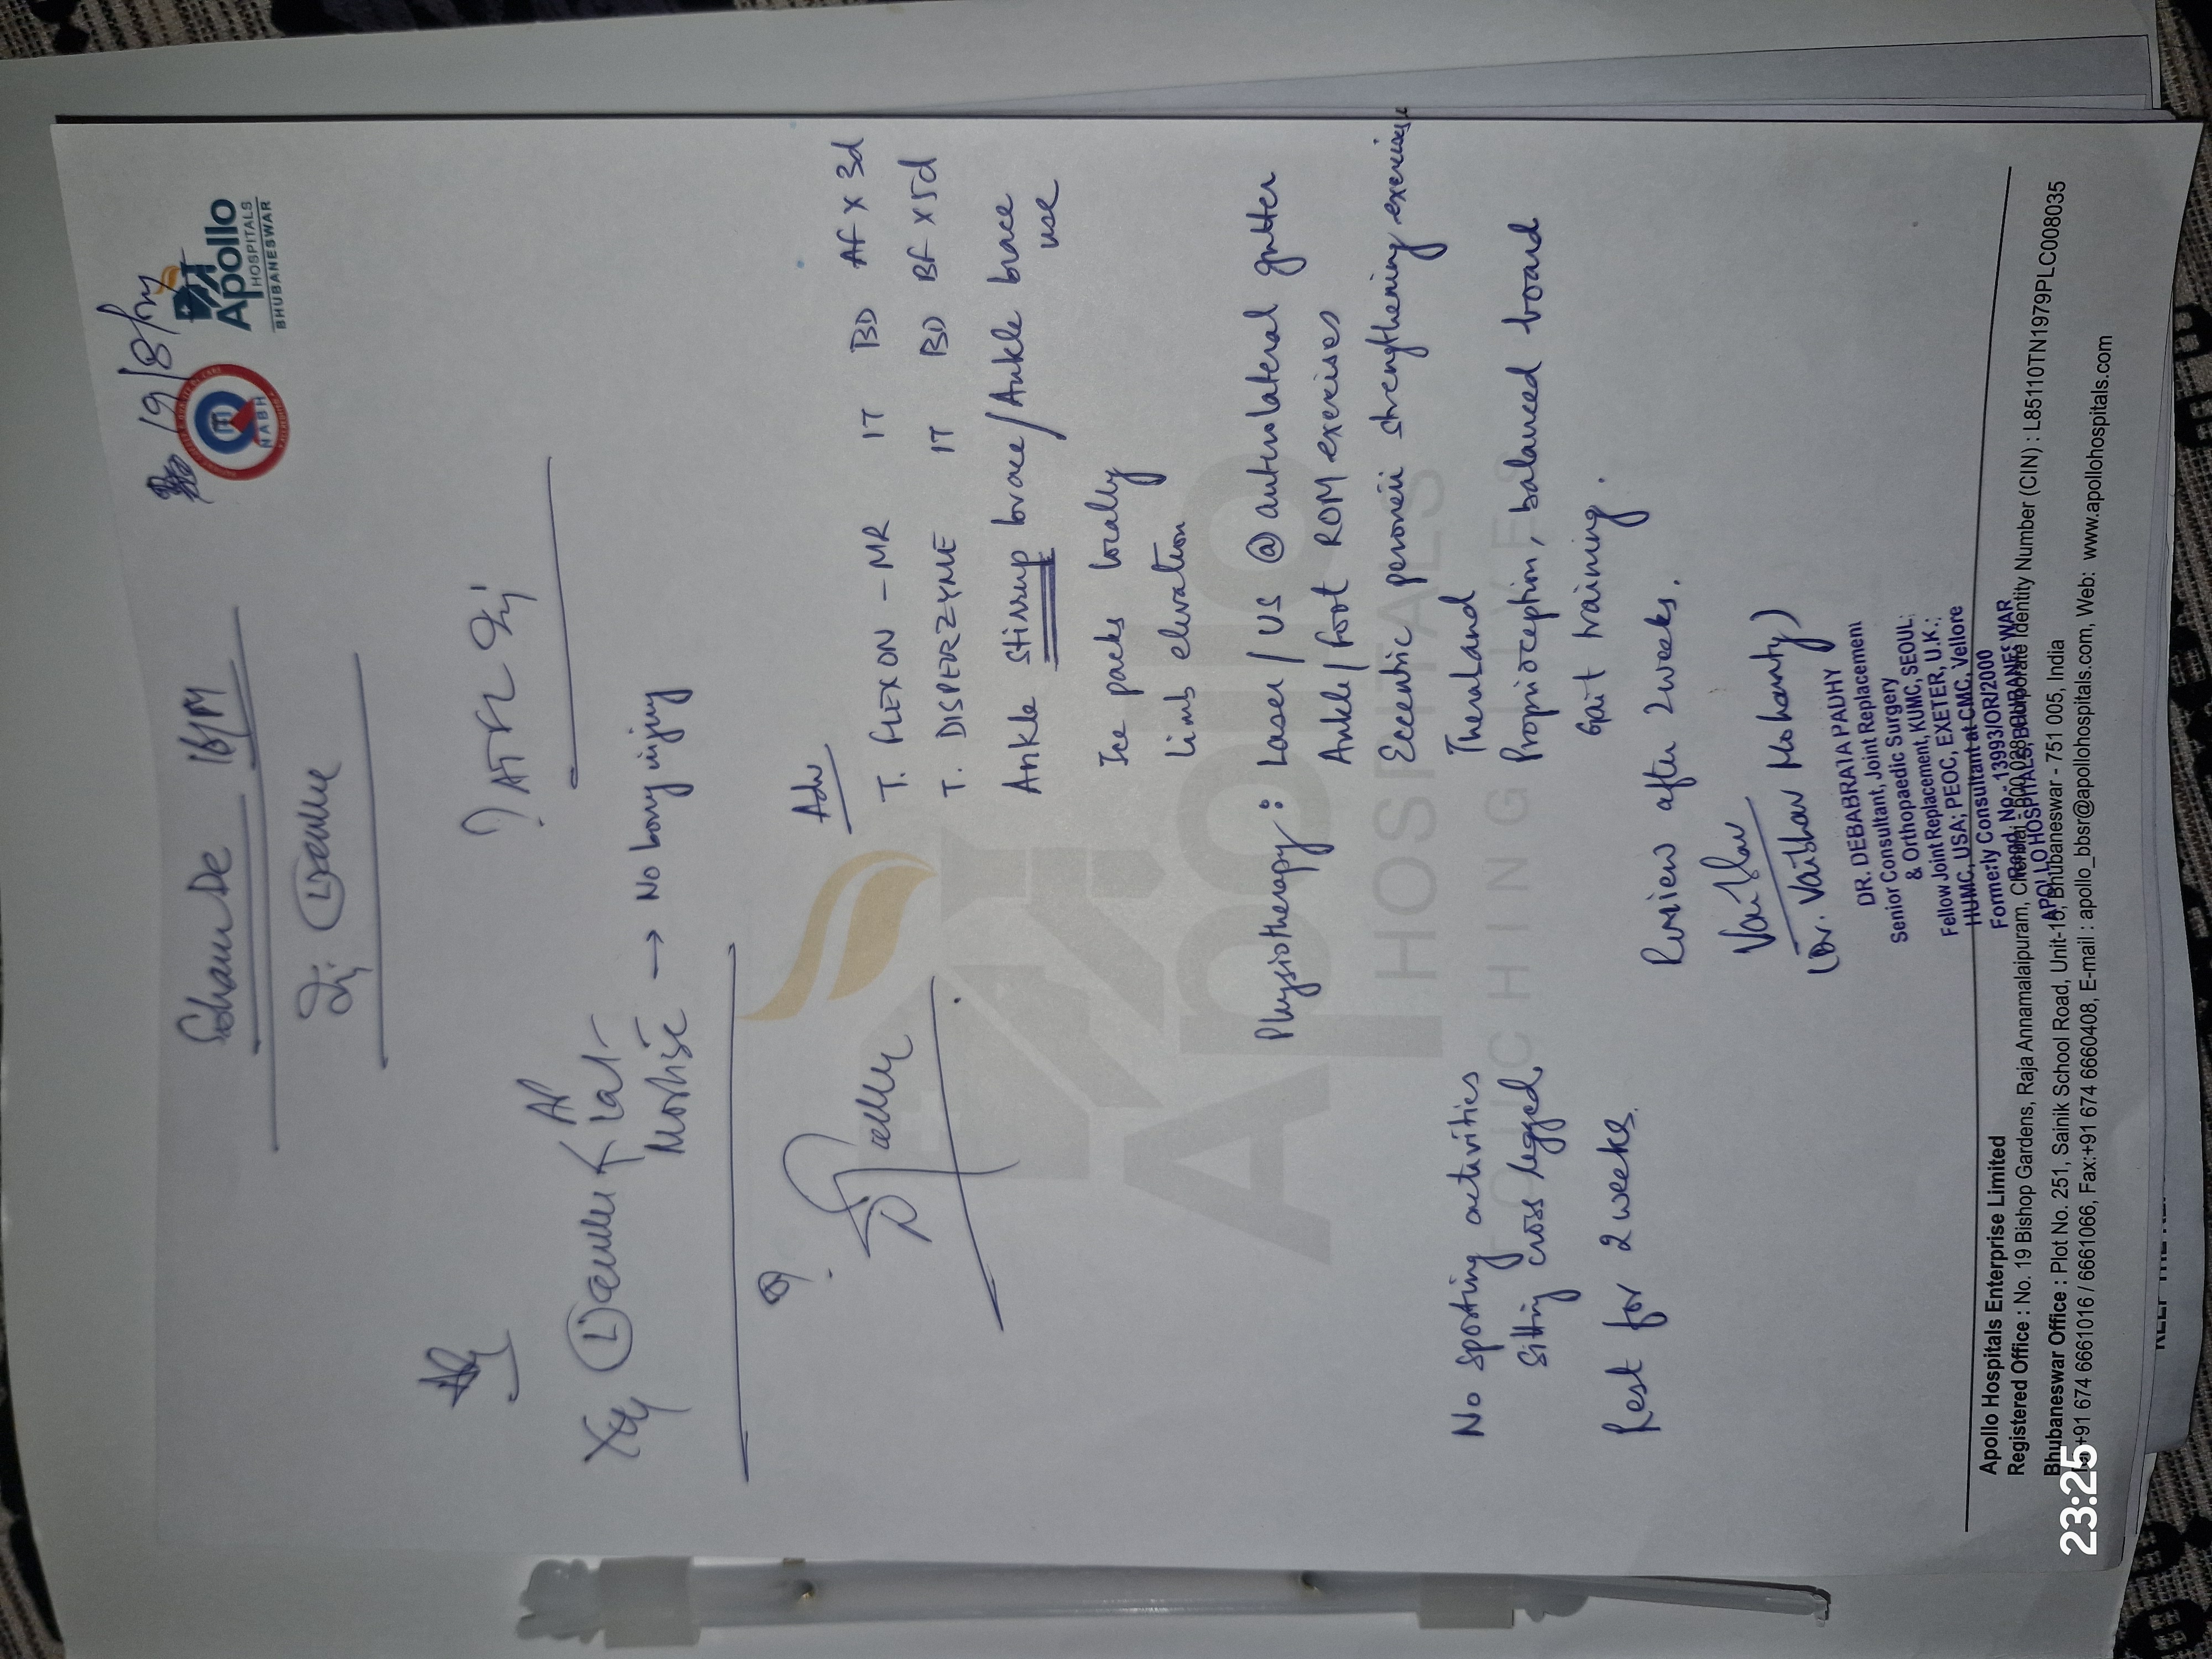 19/8/24
NABH
Apollo
HOSPITALS
BHUBANESWAR
Soham De 16/M
(L) ankle
? ATFL Inj
Xray (L) ankle AP
Lat
Mortise → No bony injury
Adv
T. FLEXON-MR 1T BD AF x 3d
T. DISPERZYME 1T BD BF x 5d
Ankle stirrup brace/Ankle brace
use
Ice packs locally
Limb elevation
Physiotherapy: Laser/US @ anterolateral gutter
Ankle/foot ROM exercises
Eccentric peronei strengthening exercises
Theraband
Proprioception, balanced board
Gait training.
No sporting activities
Sitting cross legged
Rest for 2 weeks.
Review after 2 weeks.
Vaibhav
(Dr. Vaibhav Mohanty)
DR. DEBABRATA PADHY
Senior Consultant, Joint Replacement
& Orthopaedic Surgery
Fellow Joint Replacement, KUMC, SEOUL;
HUMC, USA; PEOC, EXETER, U.K.;
Formerly Consultant at CMC, Vellore
Regd. No.- 13993/OR/2000
APOLLO HOSPITALS, BHUBANESWAR
Apollo Hospitals Enterprise Limited
Registered Office : No. 19 Bishop Gardens, Raja Annamalaipuram, Chennai - 600 028 Corporate Identity Number (CIN) : L85110TN1979PLC008035
Bhubaneswar Office : Plot No. 251, Sainik School Road, Unit-15, Bhubaneswar - 751 005, India
+91 674 6661016 / 6661066, Fax:+91 674 6660408, E-mail : apollo_bbsr@apollohospitals.com, Web: www.apollohospitals.com
23:25